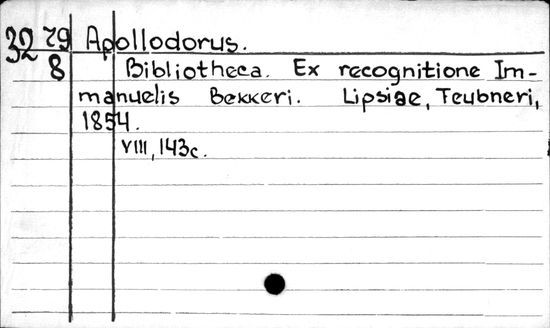 32 79 Apollodorus.
8 Bibliotheca. Ex recognitione Im-
manuelis Bekkeri. Lipsiae, Teubneri,
1854.
VIII, 143c.